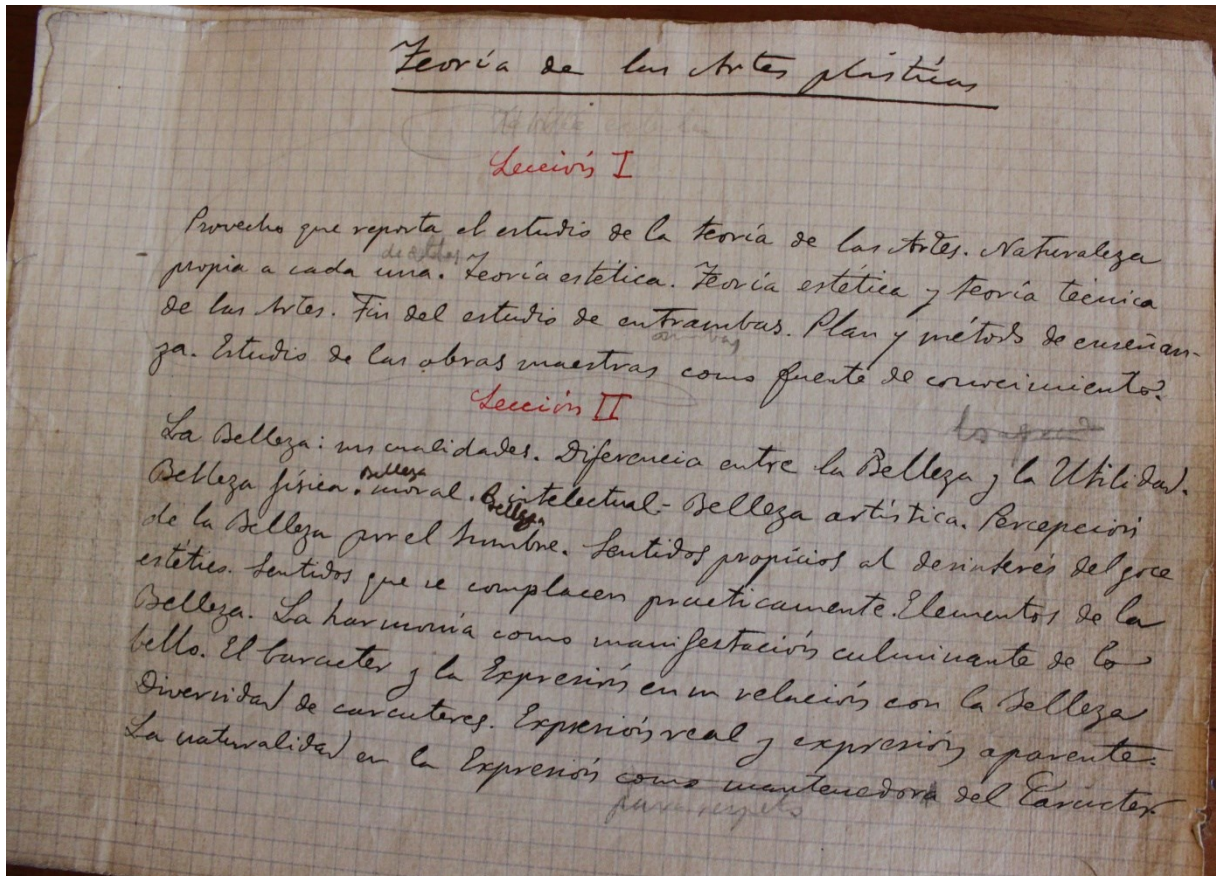 Teoría de las Artes plásticas
Lección I
Provecho que reporta el estudio de la teoría de las Artes. Naturaleza
propia a cada una. Teoría estética. Teoría estética y teoría técnica
de las Artes. Fin del estudio de entrambas. Plan y método de enseñan-
ambas
za. Estudio de las obras maestras como fuente de conocimiento.
Lección II
La Belleza: sus cualidades. Diferencia entre la Belleza y la Utilidad.
Belleza física. Belleza moral. Belleza intelectual - Belleza artística. Percepción
de la Belleza por el hombre. Sentidos propicios al desinterés del goce
estético. Sentidos que se complacen practicamente. Elementos de la
Belleza. La harmonía como manifestación culminante de lo
bello. El Caracter y la Expresión en su relación con la Belleza
Diversidad de caracteres. Expresión real y expresión aparente.
La naturalidad en la Expresión como mantenedora del Caracter